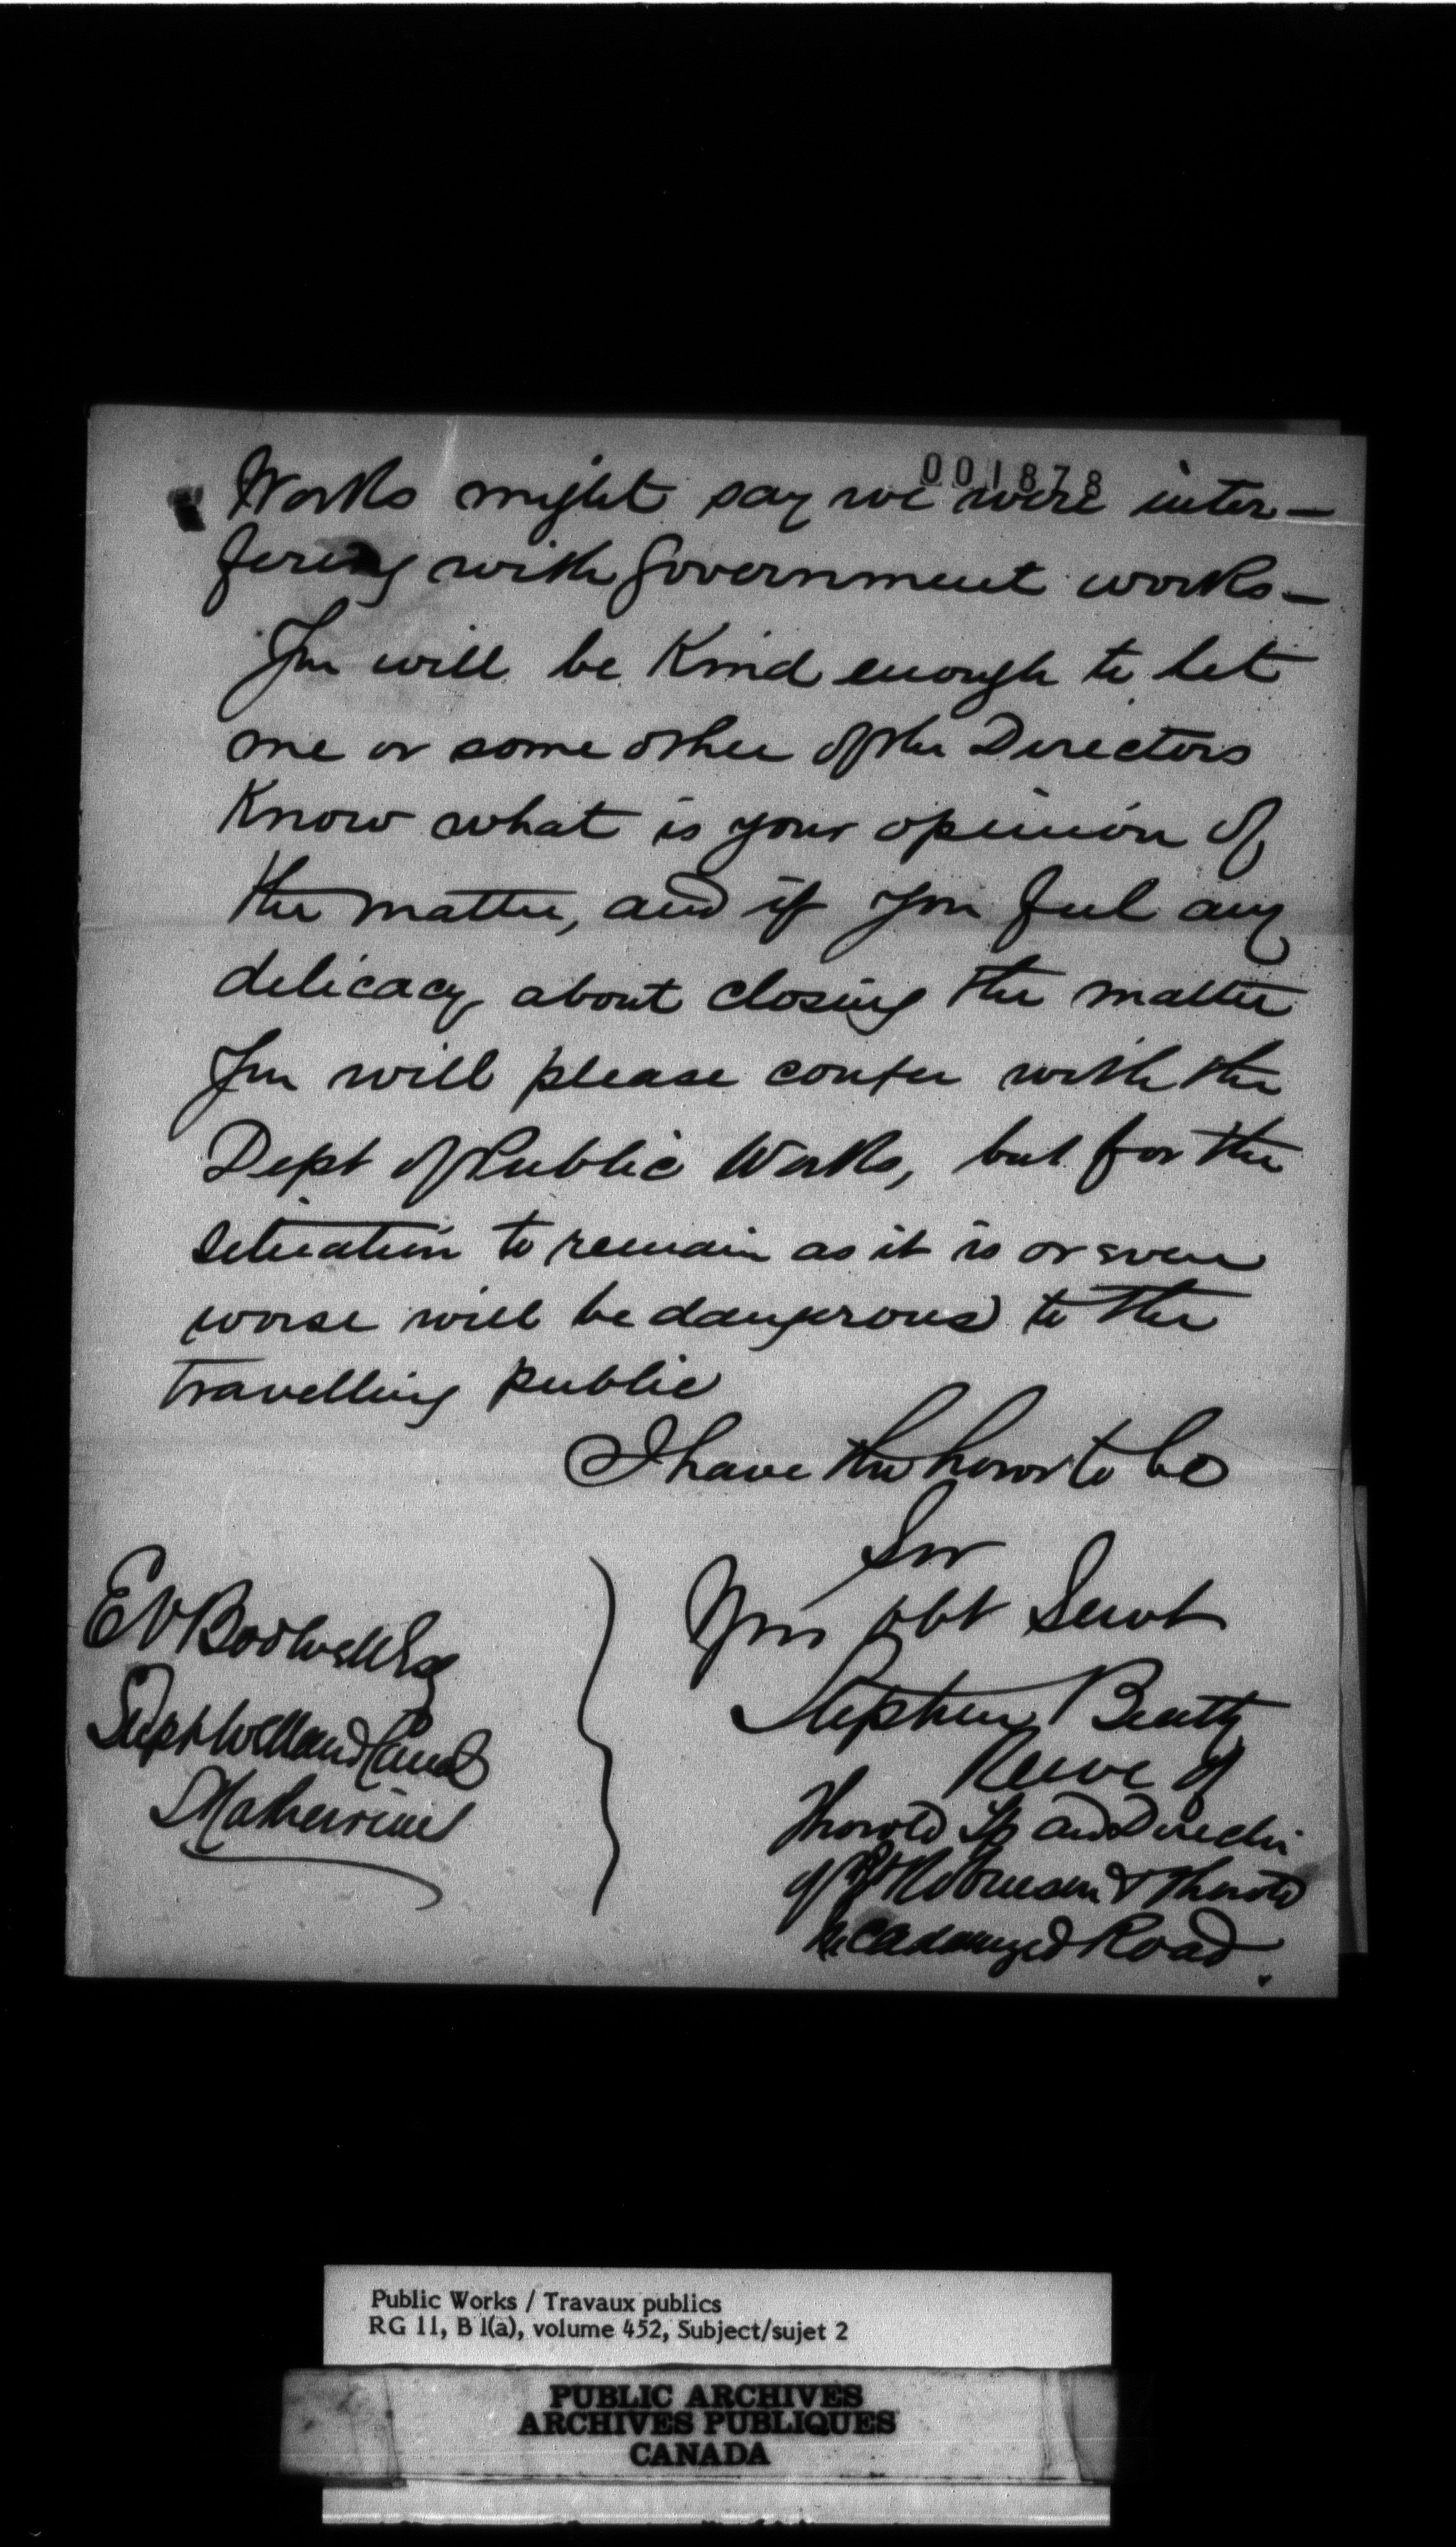 001878
Works might say we were inter-
fering with Government works-
You will be Kind enough to let
me or some other of the Directors
Know what is your opinion of
the matter, and if you feel any
delicacy about closing the matter
You will please confer with the
Dept of Public Works, but for the
situation to remain as it is or even
worse will be dangerous to the
travelling public
I have the honor to be
Sir
Your obt Servt
Stephen Beatty
Reeve of
Thorold Tp and Director
of Pt Robinson & Thorold
McAdamized Road.
E V Bodwell Esq
Supt Welland Canal
St Catherines
Public Works / Travaux publics
RG 11, B 1(a), volume 452, Subject/sujet 2
PUBLIC ARCHIVES
ARCHIVES PUBLIQUES
CANADA